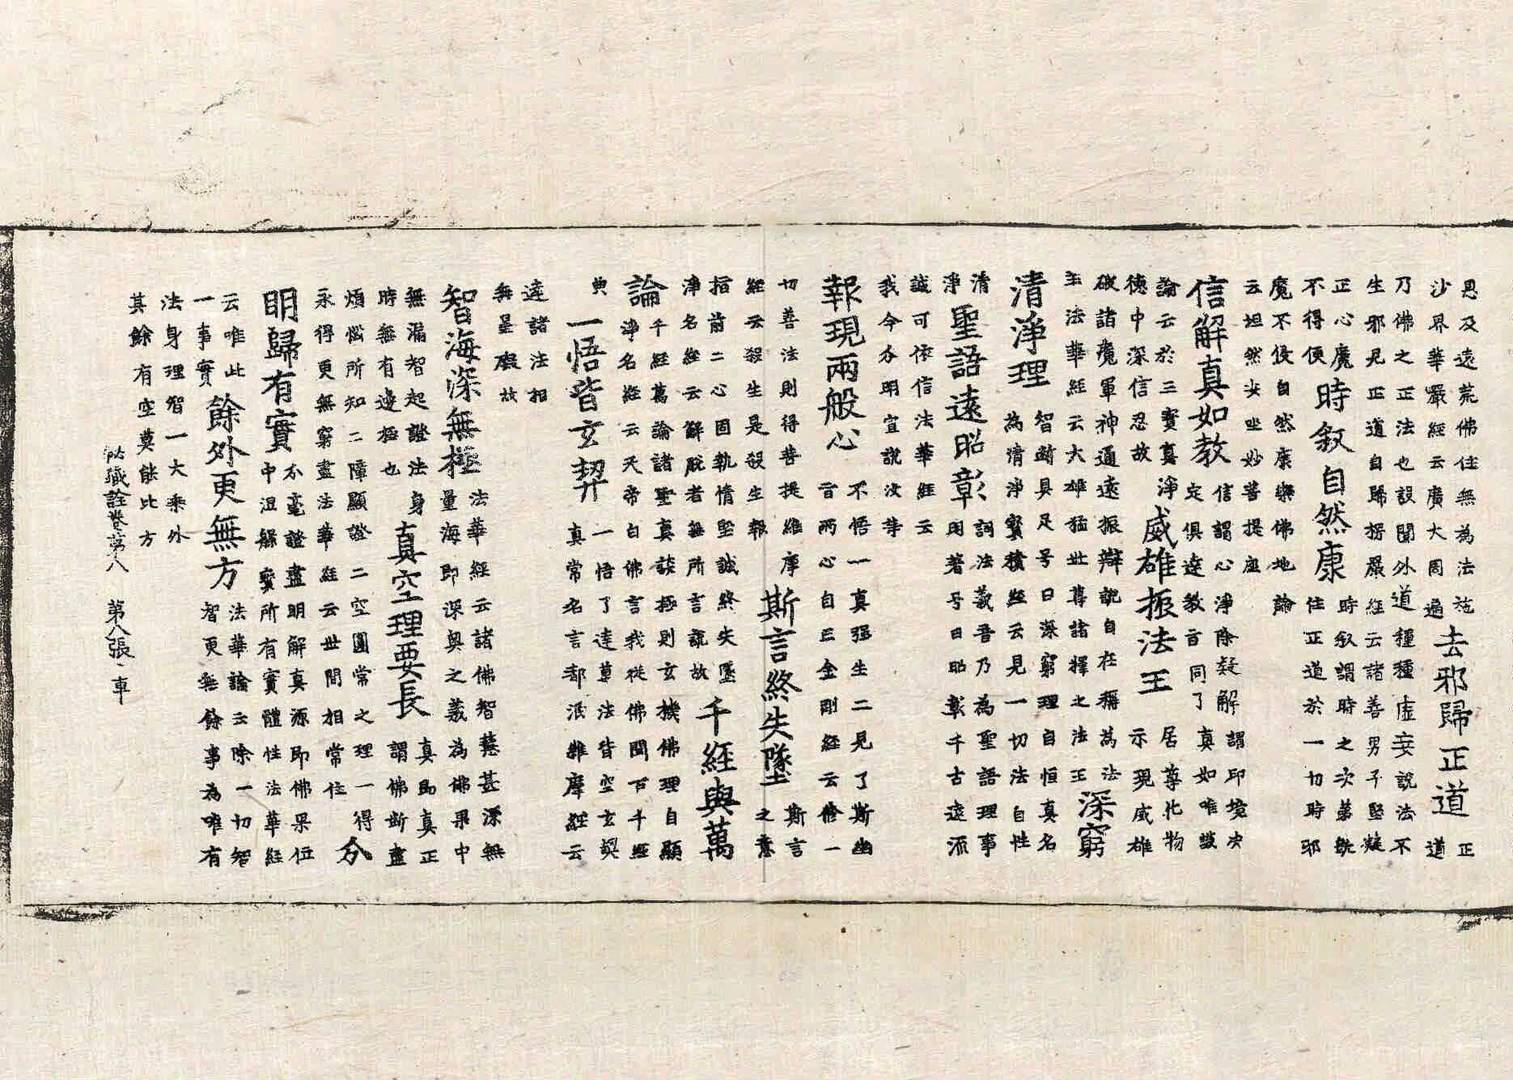 恩及遠荒佛住無為法施
沙界華嚴經云廣大周遍
去邪歸正道
正
道
乃佛之正法也設聞外道種種虛妄說法不
生邪見正道自歸楞嚴經云諸善男子堅凝
正心魔
不得便
時叙自然康
時叙謂時之次第既
住正道於一切時邪
魔不侵自然康樂佛地論
云坦然安坐妙菩提座
信解真如教
信謂心淨除疑解謂印境决
定俱達教旨同了真如唯識
論云於三寶真淨
德中深信忍故
威雄振法王
居尊化物
示現威雄
破諸魔軍神通遠振辯說自在稱為法
王法華經云大雄猛世尊諸釋之法王
深窮
清淨理
智具足号曰深窮理自恒真名
為清淨寶積經云見一切法自性
清
淨
聖語遠昭彰
詞法義吾乃為聖語理事
用著号曰昭彰千古遠流
誠可依信法華經云
我今分明宣說汝等
報現兩般心
不悟一真强生二見了斯幽
旨兩心自亡金剛經云修一
切善法則得菩提維摩
經云殺生是殺生報
斯言終失墜
斯言
之意
指前二心固執情堅誠終失墜
淨名經云解脫者無所言說故
千經與萬
論
千經萬論諸聖真談極則玄機佛理自顯
淨名經云天帝白佛言我從佛聞百千經
典
一悟皆玄契
一悟了達萬法皆空玄契
真常名言都泯維摩經云
達諸法相
無罣礙故
智海深無極
法華經云諸佛智慧甚深無
量海即深奧之義為佛果中
無漏智起證法身
時無有邊極也
真空理要長
真即真正
謂佛斷盡
煩惱所知二障顯證二空圓常之理一得
永得更無窮盡法華經云世間相常住
分
明歸有實
毫證盡明解真源即佛果位
中所有實體性法華經
云唯此
一事實
餘外更無方
法華論云除一切智
智更無餘事為唯有
法身理智一大乘外
其餘有空莫能比方
秘藏詮卷第八 第八張 車